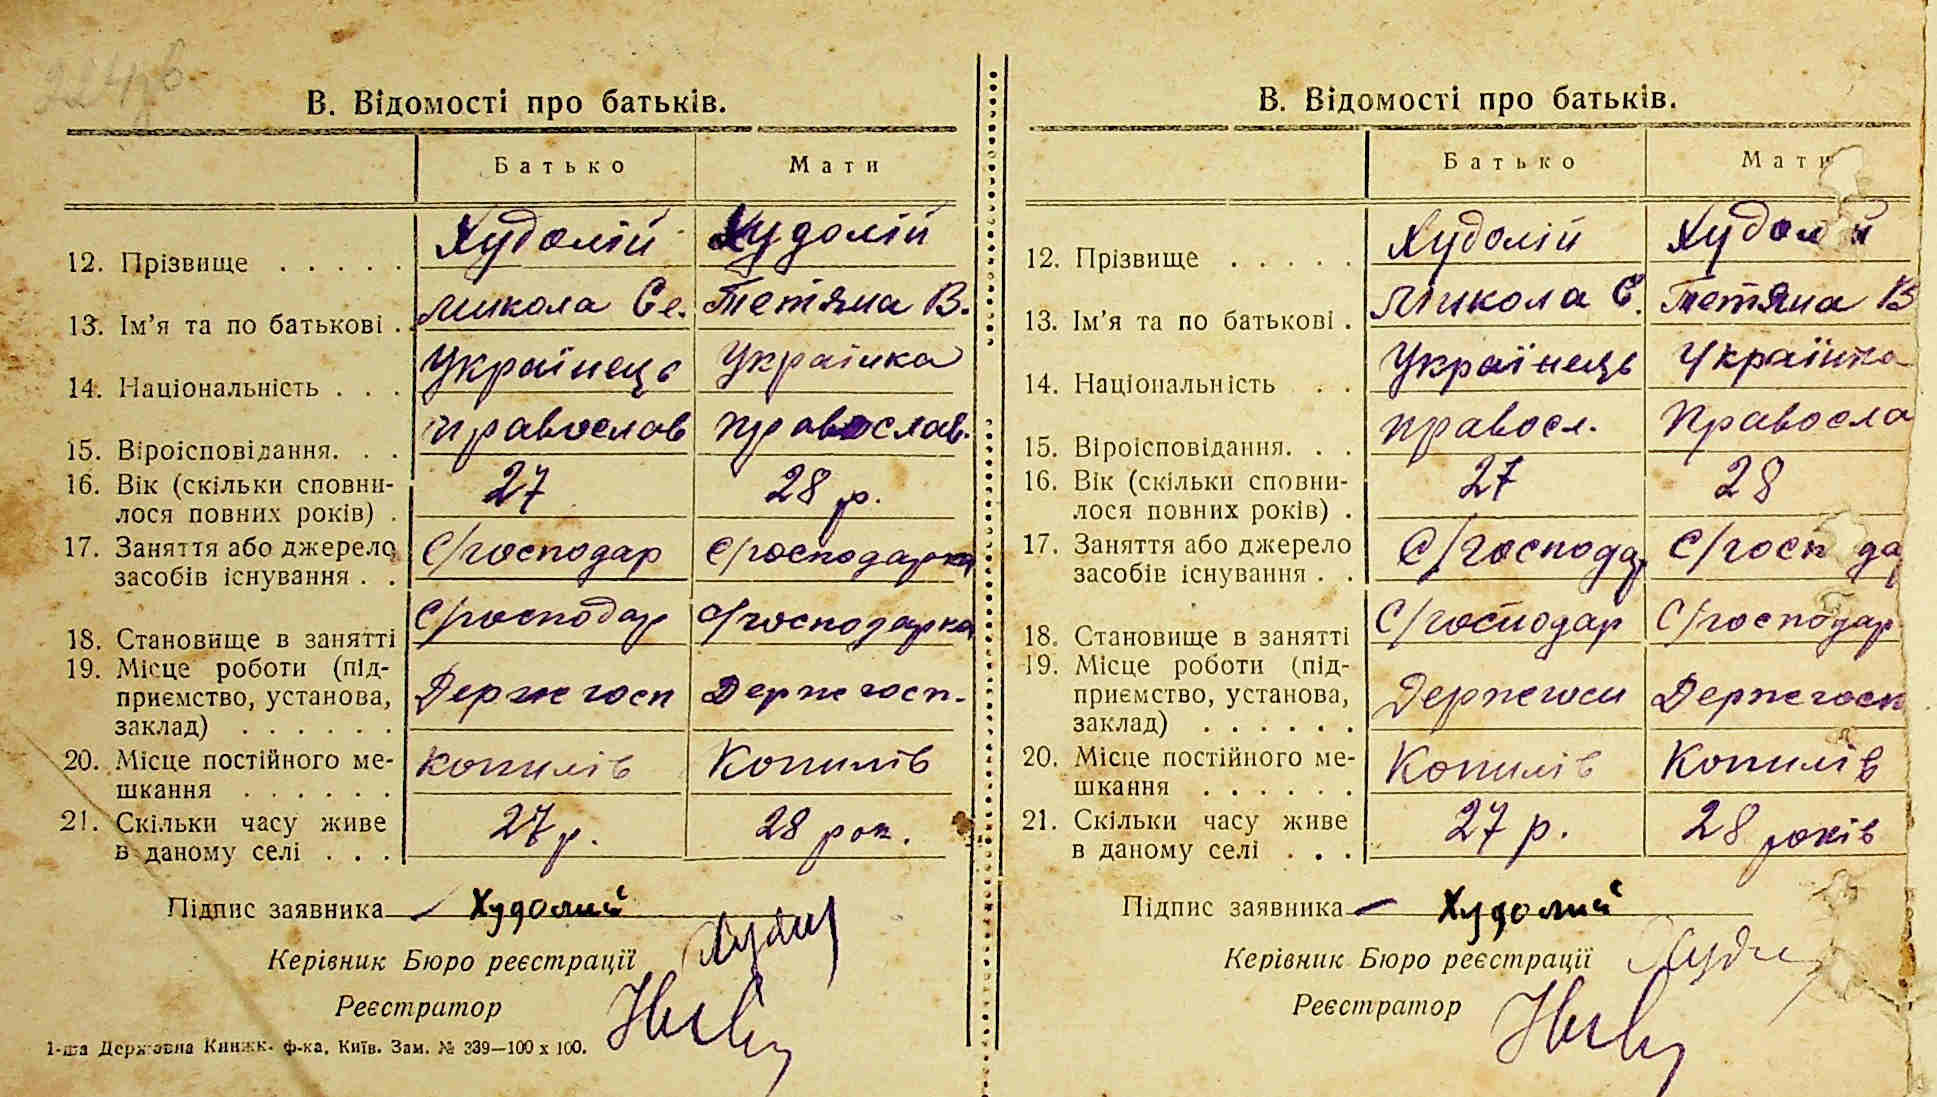 224зв.
В. Відомості про батьків.
Батько Мати
12. Прізвище . . . . . Худолій Худолій
13. Ім’я та по батькові . Микола Єв. Тетяна В.
14. Національність . . . Українець Українка
15. Віроісповідання. . . православ православ.
16. Вік (скільки сповни-
лося повних років) . 27 28 р.
17. Заняття або джерело
засобів існування . . С/господар С/господарка
18. Становище в занятті С/господар С/господарка
19. Місце роботи (під-
приємство, установа,
заклад) . . . . . . Держгосп Держгосп.
20. Місце постійного ме-
шкання . . . . . . Копилів Копилів
21. Скільки часу живе
в даному селі . . . 27 р. 28 рок.
Підпис заявника Худолий
Керівник Бюро реєстрації
Реєстратор
1-ша Державна Книжк. ф-ка, Київ. Зам. № 339—100 х 100.
В. Відомості про батьків.
Батько Мати
12. Прізвище . . . . . Худолій Худолій
13. Ім’я та по батькові . Микола Є. Тетяна В
14. Національність . . Українець Українка
15. Віроісповідання. . . правосл. Правосла
16. Вік (скільки сповни-
лося повних років) . 27 28
17. Заняття або джерело
засобів існування . . С/господар С/господа
18. Становище в занятті С/господар С/господар
19. Місце роботи (під-
приємство, установа,
заклад) . . . . . . Держгосп Держгосп
20. Місце постійного ме-
шкання . . . . . . Копилів Копилів
21. Скільки часу живе
в даному селі . . . 27 р. 28 років
Підпис заявника Худолий
Керівник Бюро реєстрації
Реєстратор